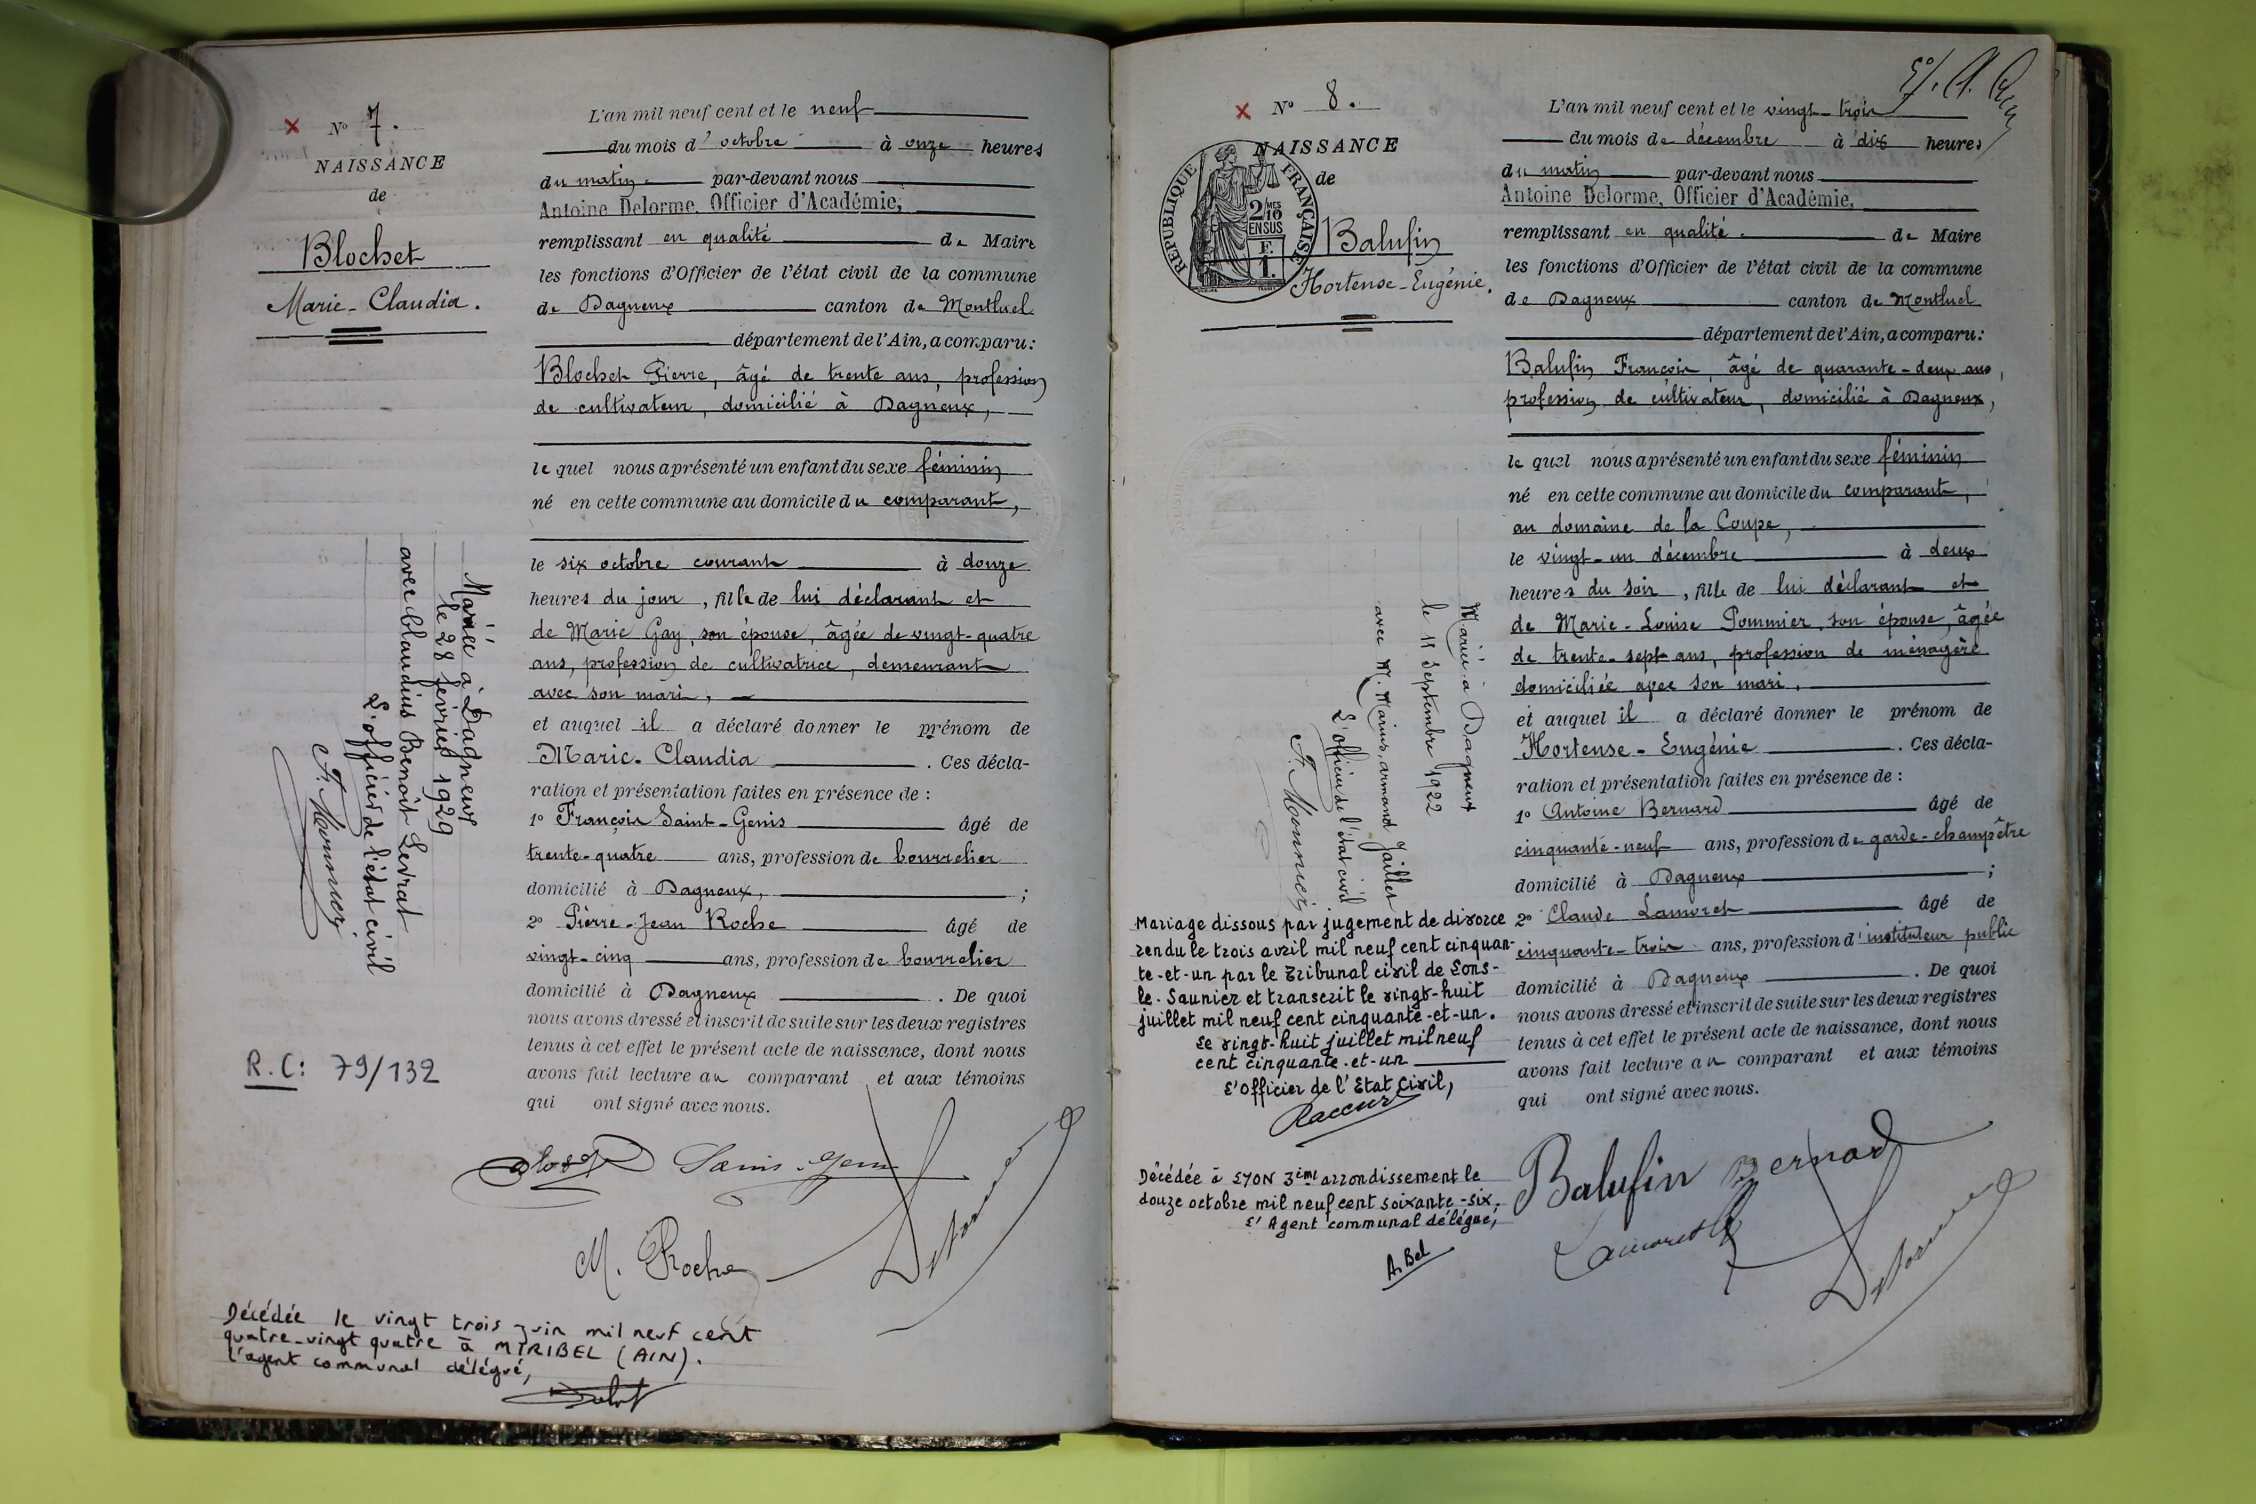 N° 7.
NAISSANCE
de
Blochet
Marie-Claudia.
L'an mil neuf cent et le neuf
du mois d'octobre à onze heures
du matin par-devant nous
Antoine Delorme, Officier d'Académie,
remplissant en qualité de Maire
les fonctions d'Officier de l'état civil de la commune
de Dagneux canton de Montluel
département de l'Ain, a comparu:
Blochet Pierre, âgé de trente ans, profession
de cultivateur, domicilié à Dagneux,
le quel nous a présenté un enfant du sexe féminin
né en cette commune au domicile du comparant,
le six octobre courant à douze
heures du jour, fille de lui déclarant et
de Marie Gay, son épouse, âgée de vingt-quatre
ans, profession de cultivatrice, demeurant
avec son mari,
et auquel il a déclaré donner le prénom de
Marie-Claudia. Ces décla-
ration et présentation faites en présence de :
1° François Saint-Genis âgé de
trente-quatre ans, profession de bourrelier
domicilié à Dagneux, ;
2° Pierre-Jean Roche âgé de
vingt-cinq ans, profession de bourrelier
domicilié à Dagneux. De quoi
nous avons dressé et inscrit de suite sur les deux registres
tenus à cet effet le présent acte de naissance, dont nous
avons fait lecture au comparant et aux témoins
qui ont signé avec nous.
Mariée à Dagneux
le 28 février 1929
avec Claudius Benoit Levrat
L'officier de l'état civil
F. Monnier
R.C: 79/132
M. Roche
Delorme
Décédée le vingt trois juin mil neuf cent
quatre-vingt quatre à MIRIBEL (AIN).
L'agent communal délégué,
N° 8.
NAISSANCE
de
RÉPUBLIQUE FRANÇAISE
2/10 MES
EN SUS
F.
1.
Balufin
Hortense-Eugénie.
L'an mil neuf cent et le vingt-trois
du mois de décembre à dix heures
du matin par-devant nous
Antoine Delorme, Officier d'Académie,
remplissant en qualité de Maire
les fonctions d'Officier de l'état civil de la commune
de Dagneux canton de Montluel
département de l'Ain, a comparu:
Balufin François, âgé de quarante-deux ans,
profession de cultivateur, domicilié à Dagneux,
le quel nous a présenté un enfant du sexe féminin
né en cette commune au domicile du comparant,
au domaine de la Coupe,
le vingt-un décembre à deux
heures du soir, fille de lui déclarant et
de Marie-Louise Pommier, son épouse, âgée
de trente-sept ans, profession de ménagère
domiciliée avec son mari,
et auquel il a déclaré donner le prénom de
Hortense-Eugénie. Ces décla-
ration et présentation faites en présence de :
1° Antoine Bernard âgé de
cinquante-neuf ans, profession de garde-champêtre
domicilié à Dagneux ;
2° Claude Lamoret âgé de
cinquante-trois ans, profession d'instituteur public
domicilié à Dagneux. De quoi
nous avons dressé et inscrit de suite sur les deux registres
tenus à cet effet le présent acte de naissance, dont nous
avons fait lecture au comparant et aux témoins
qui ont signé avec nous.
Mariée à Dagneux
le 11 Septembre 1922
avec M. Marius, armand Jaillet
L'officier de l'état civil
F. Monnier
Mariage dissous par jugement de divorce
rendu le trois avril mil neuf cent cinquan-
te-et-un par le Tribunal civil de Lons-
le-Saunier et transcrit le vingt-huit
juillet mil neuf cent cinquante-et-un.
Le vingt-huit juillet mil neuf
cent cinquante-et-un
L'Officier de l'Etat Civil,
Décédée à LYON 3ème arrondissement le
douze octobre mil neuf cent soixante-six.
L'Agent communal délégué,
A. Bel
Balufin Bernard
Lamoret
Delorme